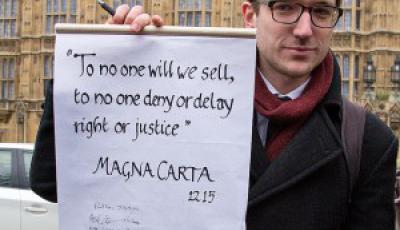 "To no one will we sell,
to no one deny or delay
right or justice"
MAGNA CARTA
1215